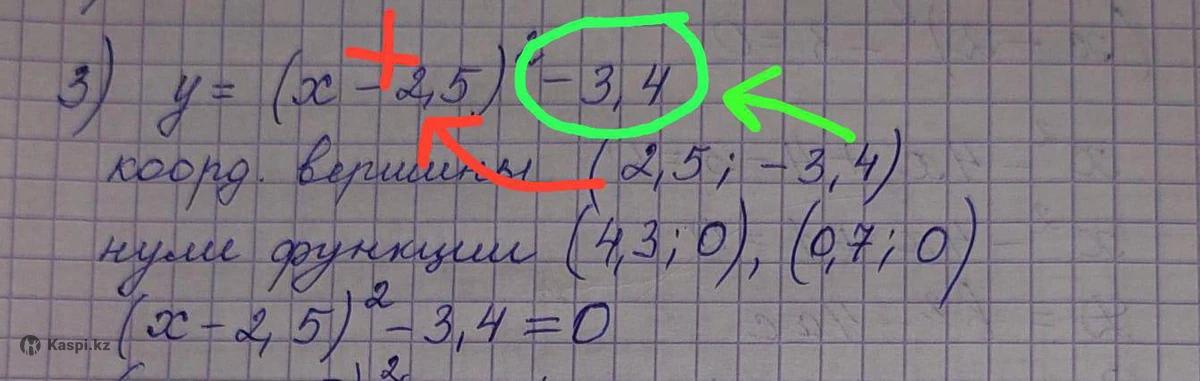 3) y = (x - 2,5)² - 3,4
коорд. вершины (2,5; -3,4)
нули функции (4,3; 0), (0,7; 0)
(x - 2,5)² - 3,4 = 0
Kaspi.kz